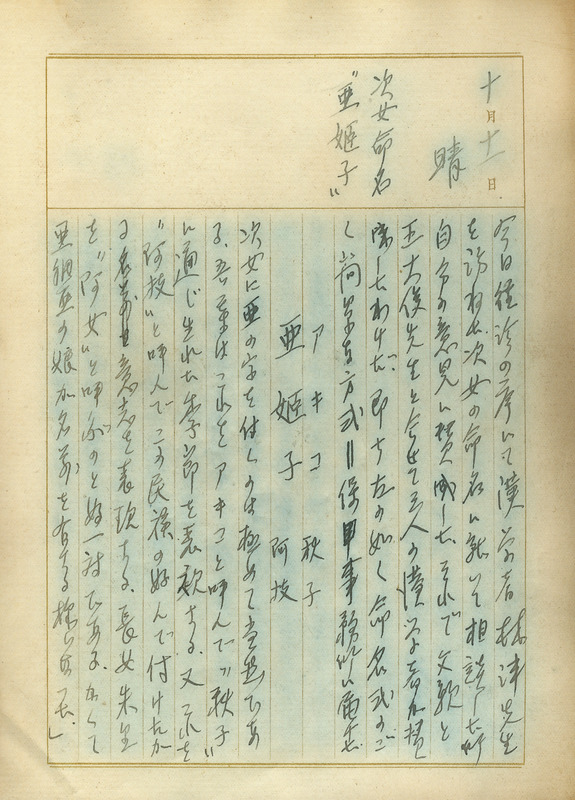 十月十一日
晴
次女命名
“亜姫子”
今日往診の序いで漢学者林津先生
を訪ねた次女の命名に就いて相談した所
自分の意見に賛成した。それで文
王大俊先生と合せて三人の漢学者が賛
したわけだ。即ち左の如く命名式のご
く簡単な方式＝保甲事務所に届出
アキコ 秋子
亜姫子 阿枝
次女に亜の字を付くのは極めて当然であ
る、吾輩はこれをアキコと呼んで“秋子”
に通じ生れた季節を表現する。又これを
“阿枝”と呼んでこの民族の好んで付けたが
る名前は意志を表現する。長女朱里
を“阿女”と呼ぶのと好一対である。かくて
亜細亜の娘が名前を有する様になった。」